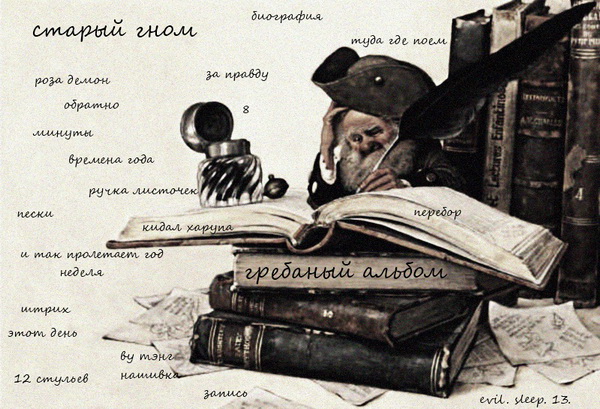 биография
старый гном
туда где поем
за правду
роза демон
обратно
8
минуты
времена года
ручка листочек
пески
перебор
кидал харупа
и так пролетает год
неделя
гребаный альбом
штрих
этот день
ву тэнг
нашивка
12 стульев
запись
evil. sleep. 13.
4